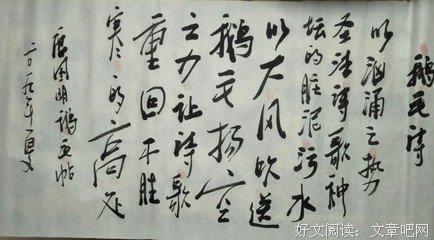 鹅毛诗
以汹涌之势
圣洁诗歌神
坛的脏泥污水
以大风吹送
鹅毛扬空
之力让诗歌
重回不胜
寒的高处
唐国明鹅毛帖
二〇一九年
好文阅读：文章吧网